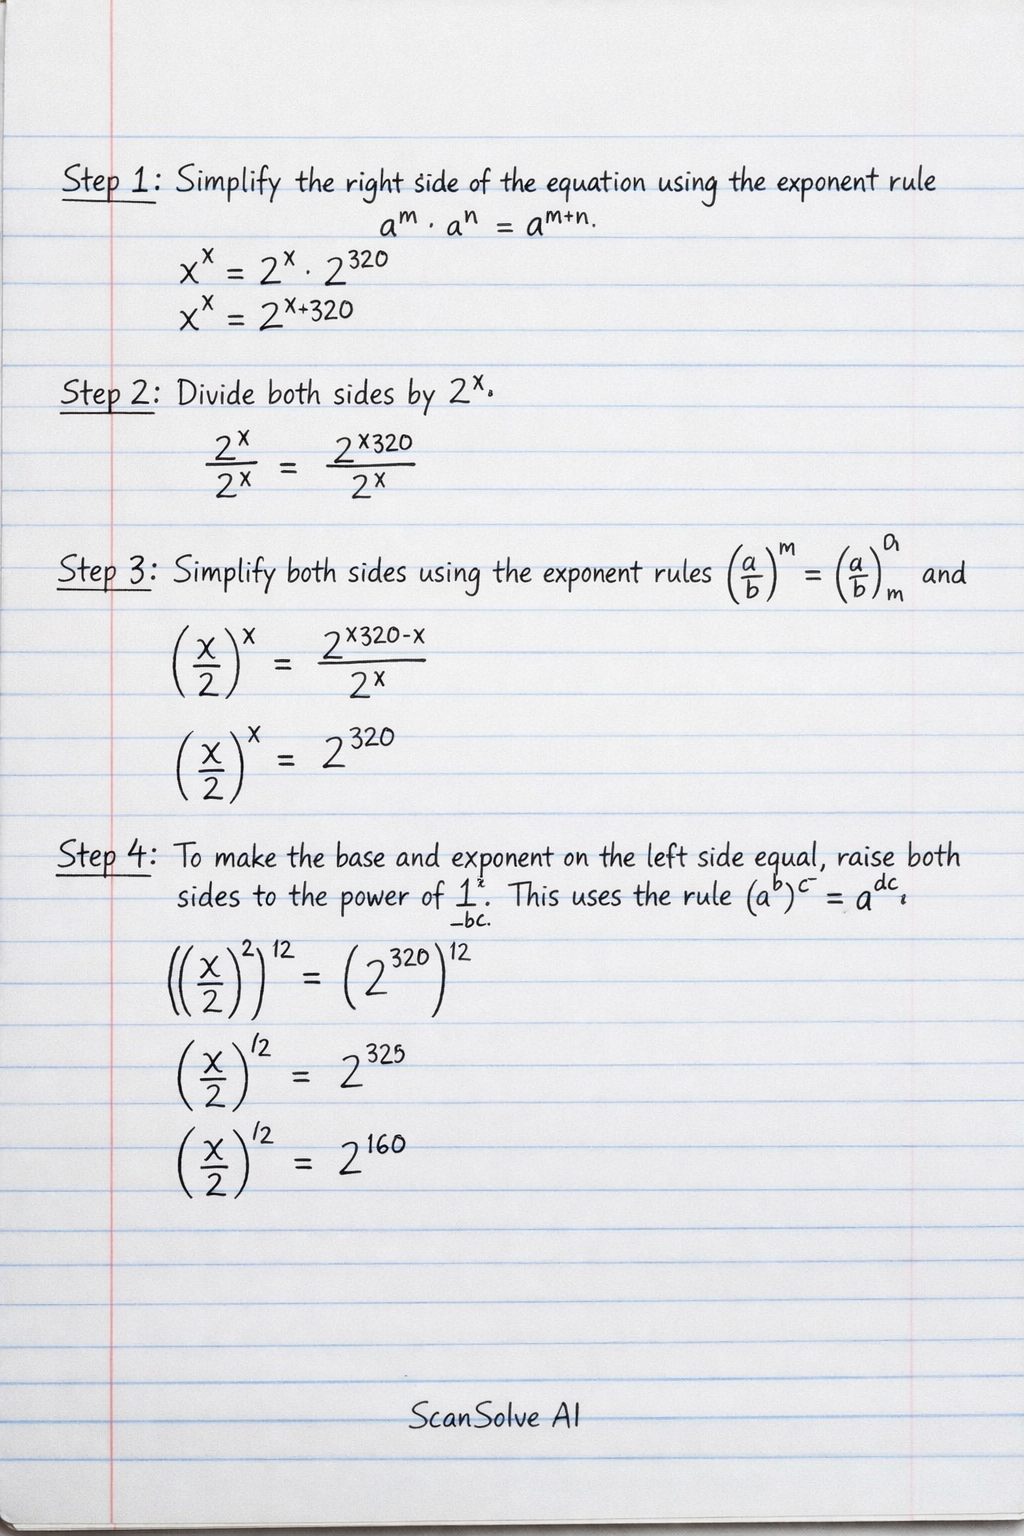 Step 1: Simplify the right side of the equation using the exponent rule
a^m · a^n = a^{m+n}.
x^x = 2^x · 2^{320}
x^x = 2^{x+320}
Step 2: Divide both sides by 2^x.
2^x/2^x = 2^{x320}/2^x
Step 3: Simplify both sides using the exponent rules (a/b)^m = (a/b)^a_m and
(x/2)^x = 2^{x320-x}/2^x
(x/2)^x = 2^{320}
Step 4: To make the base and exponent on the left side equal, raise both
sides to the power of 1^x. This uses the rule (a^b)^c = a^{dc}.
-bc.
((x/2)^2)^{12} = (2^{320})^{12}
(x/2)^{12} = 2^{325}
(x/2)^{12} = 2^{160}
ScanSolve AI